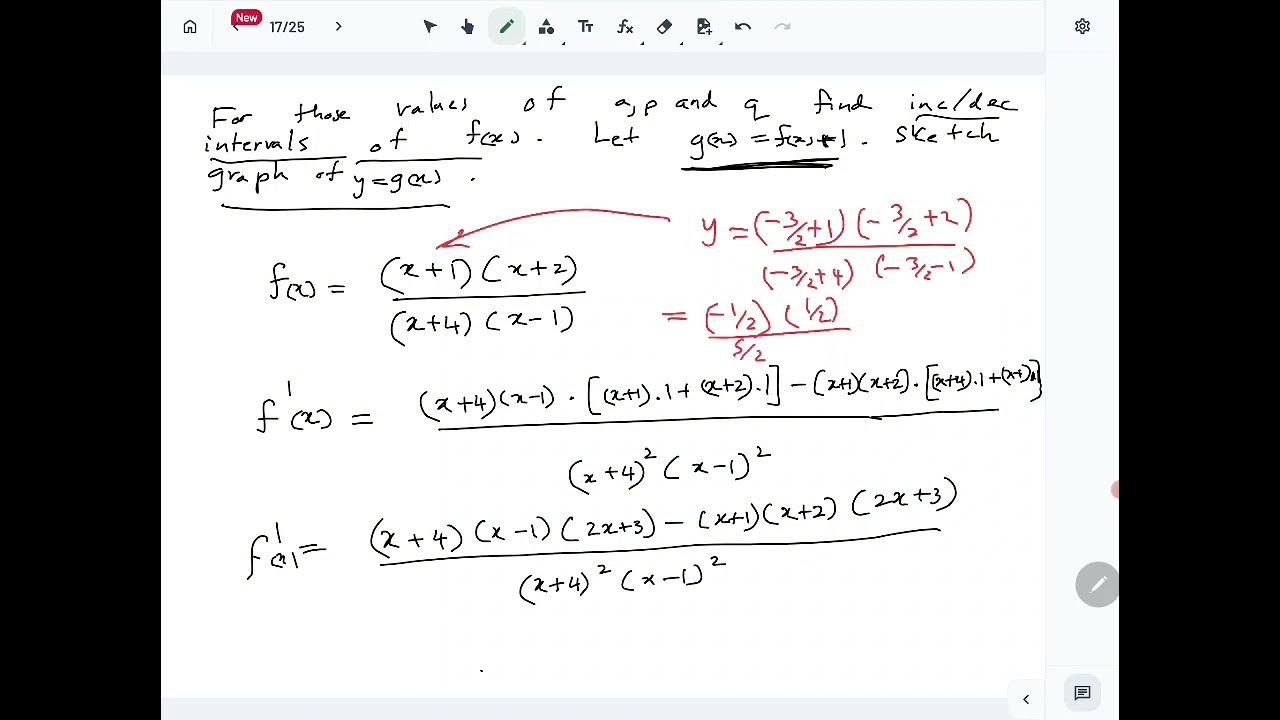 New
17/25
For those values of a, p and q find inc/dec
intervals of f(x). Let g(x) = f(x)+1. sketch
graph of y=g(x).
f(x) = (x+1)(x+2) / (x+4)(x-1)
y = (-3/2+1)(-3/2+2) / (-3/2+4)(-3/2-1)
= (-1/2)(1/2) / 5/2
f'(x) = (x+4)(x-1).[(x+1).1+(x+2).1]-(x+1)(x+2).[(x+4).1+(x-1).1] / (x+4)²(x-1)²
f'(x) = (x+4)(x-1)(2x+3)-(x+1)(x+2)(2x+3) / (x+4)²(x-1)²